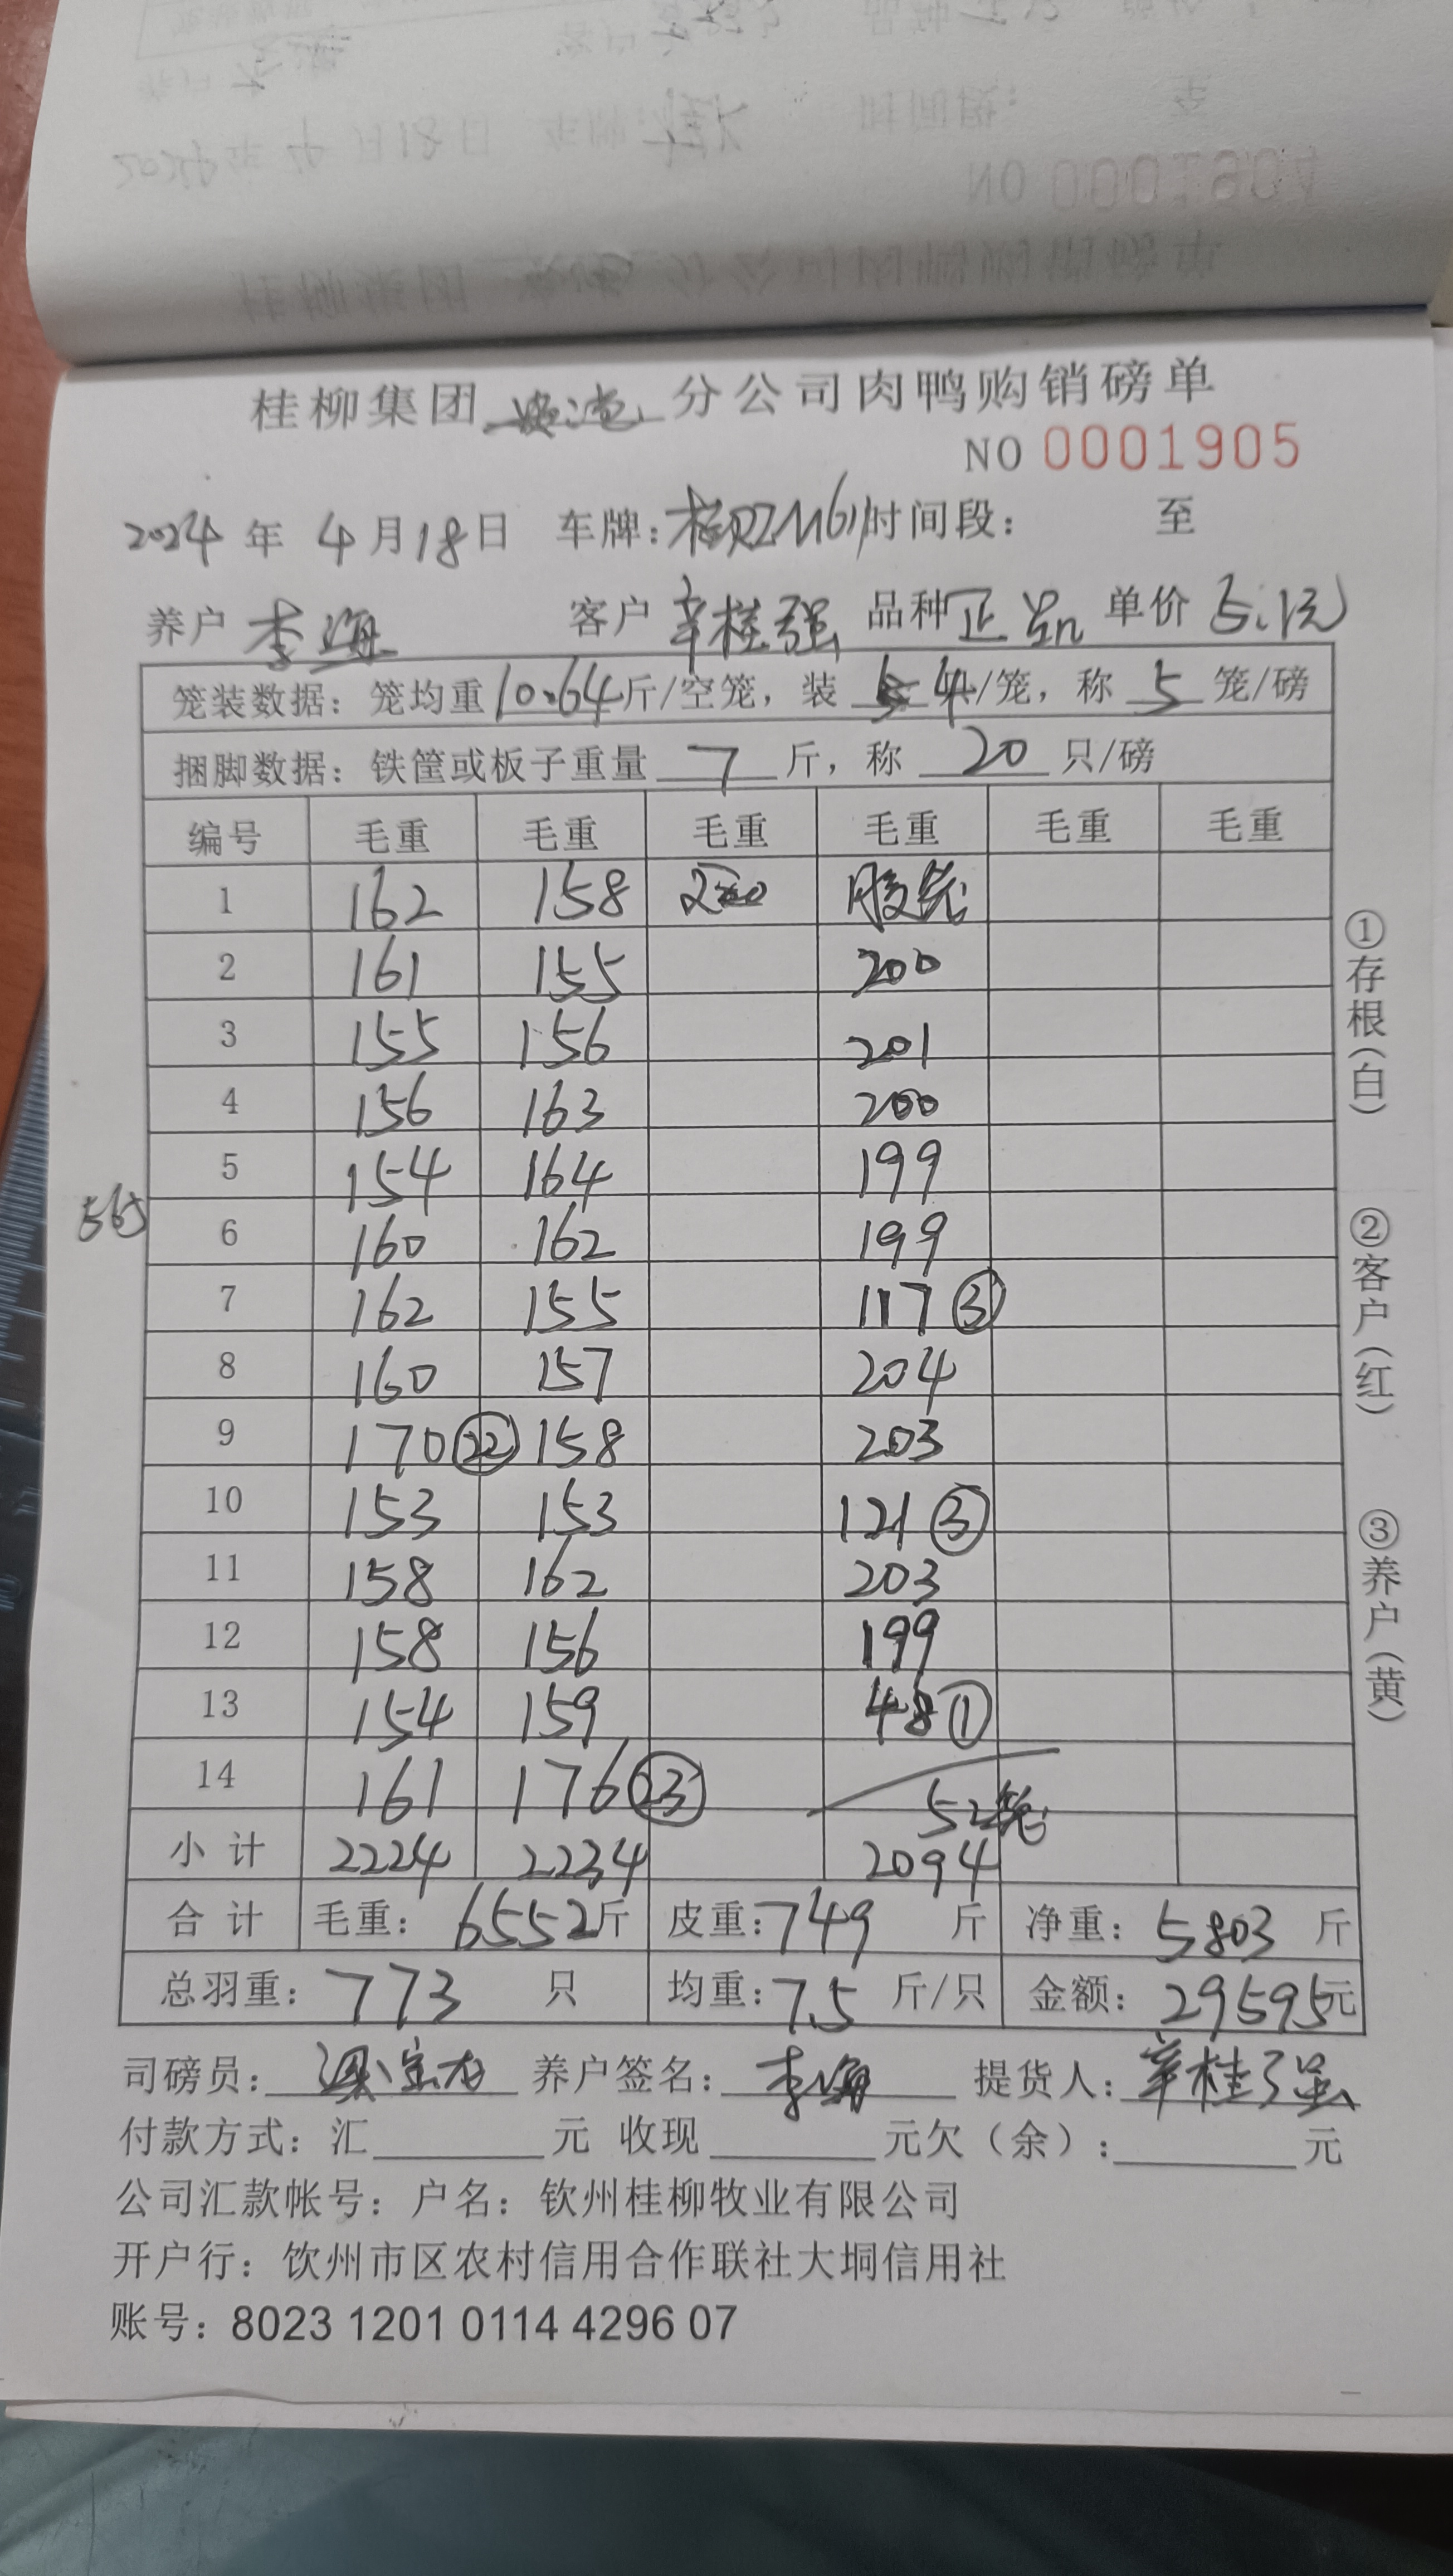 桂柳集团 分公司肉鸭购销磅单
NO 0001905
2024 年 4 月 18 日 车牌: 时间段: 至
养户 李海 客户 辛桂强 品种 正品 单价 5.1元
笼装数据: 笼均重 10.64 斤/空笼, 装 4 /笼, 称 5 笼/磅
捆脚数据: 铁筐或板子重量 7 斤, 称 20 只/磅
编号 毛重 毛重 毛重 毛重 毛重 毛重
1 162 158 胶笼
2 161 155 200
3 155 156 201
4 156 163 200
5 154 164 199
565
6 160 162 199
7 162 155 117 ③
8 160 157 204
9 170 ㉒ 158 203
10 153 153 121 ③
11 158 162 203
12 158 156 199
13 154 159 48 ①
14 161 176 ㉓ 52笼
小计 2224 2234 2094
合计 毛重: 6552斤 皮重: 749 斤 净重: 5803 斤
总羽重: 773 只 均重: 7.5 斤/只 金额: 29595元
司磅员: 养户签名: 李海 提货人: 辛桂强
付款方式: 汇 元 收现 元欠(余): 元
公司汇款帐号: 户名: 钦州桂柳牧业有限公司
开户行: 饮州市区农村信用合作联社大垌信用社
账号: 8023 1201 0114 4296 07
①存根(白)
②客户(红)
③养户(黄)